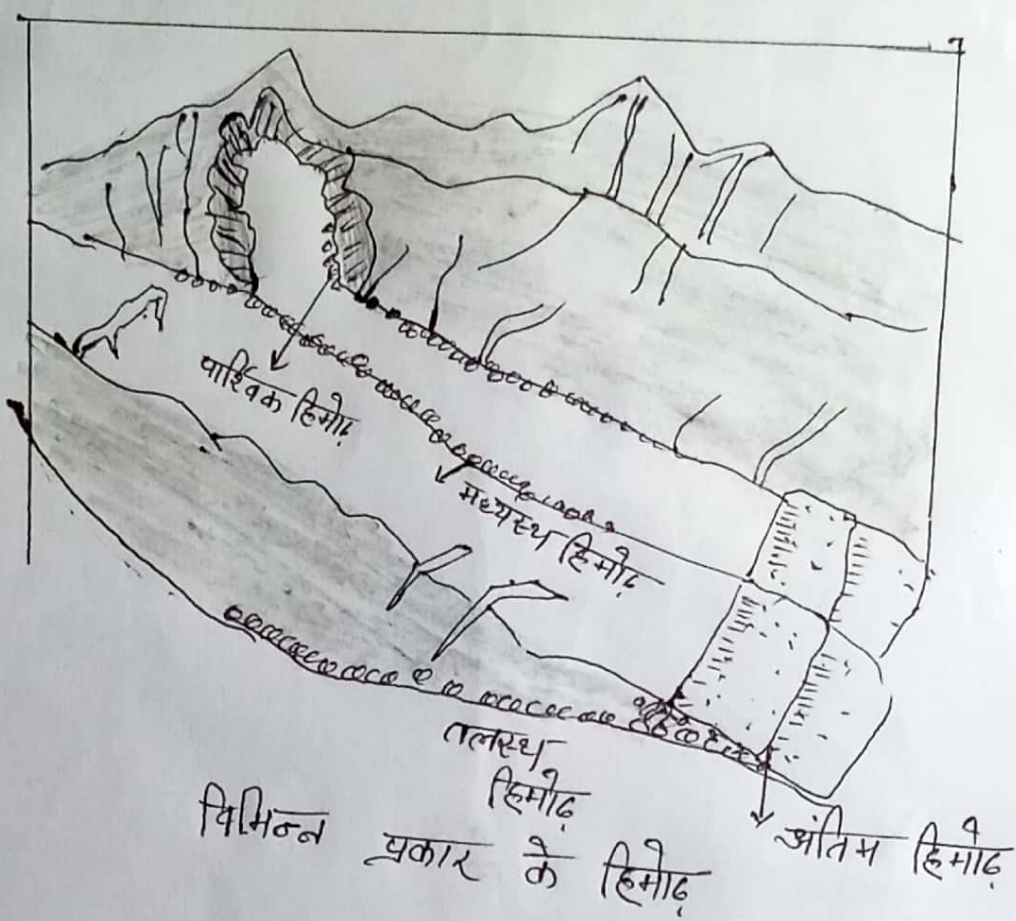 पार्श्विक हिमोढ़
मध्यस्थ हिमोढ़
तलस्थ
हिमोढ़
अंतिम हिमोढ़
विभिन्न प्रकार के हिमोढ़